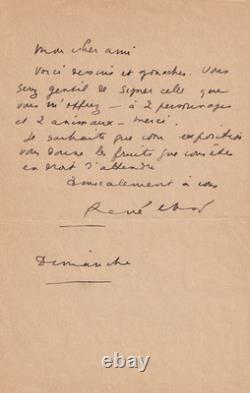 Mon cher ami
Voici dessins et gouaches. Vous
serez gentil de signer celle que
vous m'offrez – à 2 personnages
et 2 animaux – merci.
Je souhaite que cette exposition
vous donne les fruits que vous êtes
en droit d'attendre
Amicalement à vous
René Char
Dimanche
ebay